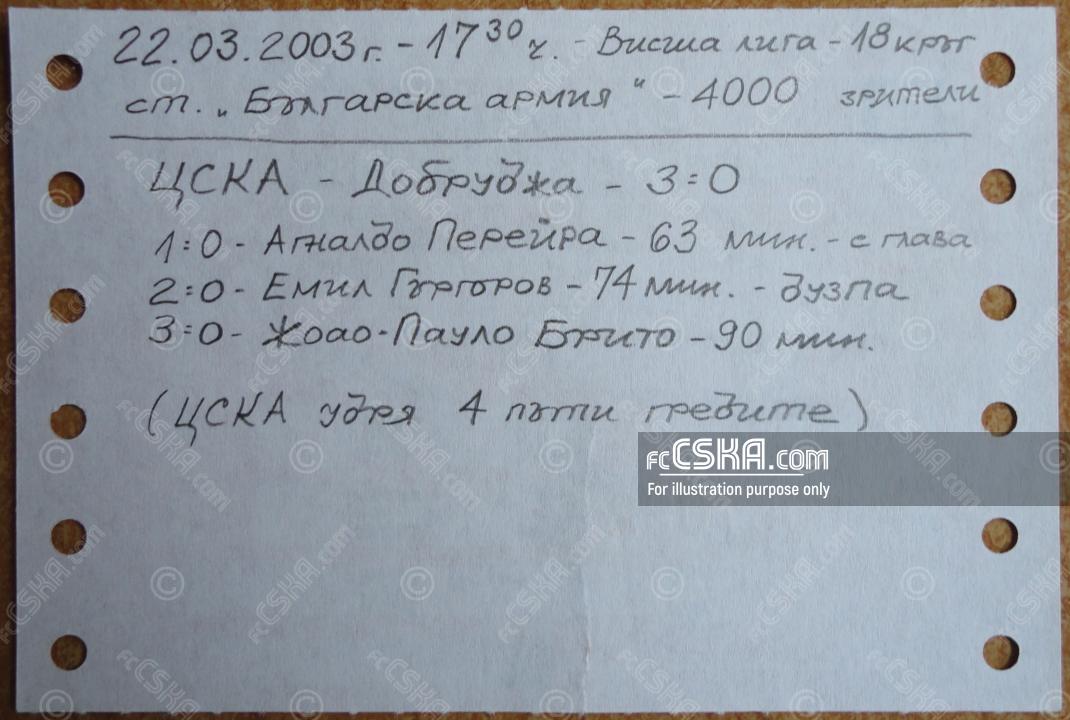 22.03.2003г. - 17³⁰ч. - Висша лига - 18 кръг
ст. „Българска армия" - 4000 зрители
ЦСКА - Добруджа - 3:0
1:0 - Агналдо Перейра - 63 мин. - с глава
2:0 - Емил Гъргоров - 74 мин. - дузпа
3:0 - Жоао-Пауло Брито - 90 мин.
(ЦСКА удря 4 пъти гредите)
fcCSKA.com
For illustration purpose only